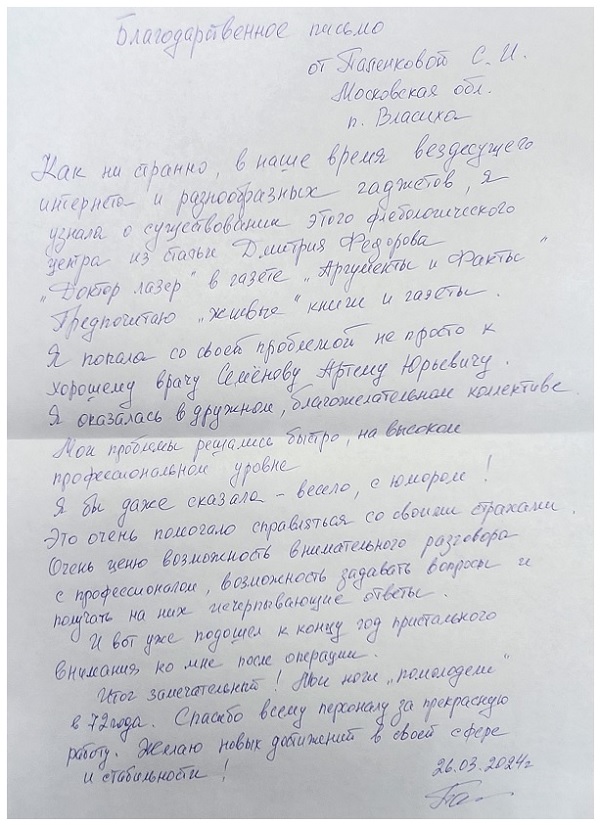 Благодарственное письмо
от Папенковой С. И.
Московская обл.
п. Власиха
Как ни странно, в наше время вездесущего
интернета и разнообразных гаджетов, я
узнала о существовании этого флебологического
центра из статьи Дмитрия Федорова
„Доктор лазер" в газете „Аргументы и Факты"
Предпочитаю „живые" книги и газеты.
Я попала со своей проблемой не просто к
хорошему врачу Семёнову Артему Юрьевичу.
Я оказалась в дружном, благожелательном коллективе.
Мои проблемы решались быстро, на высоком
профессиональном уровне
Я бы даже сказала – весело, с юмором!
Это очень помогало справляться со своими страхами.
Очень ценю возможность внимательного разговора
с профессионалом, возможность задавать вопросы и
получать на них исчерпывающие ответы.
И вот уже подошел к концу год пристального
внимания ко мне после операции.
Итог замечательный! Мои ноги „помолодели"
в 72 года. Спасибо всему персоналу за прекрасную
работу. Желаю новых достижений в своей сфере
и стабильности!
26.03.2024г